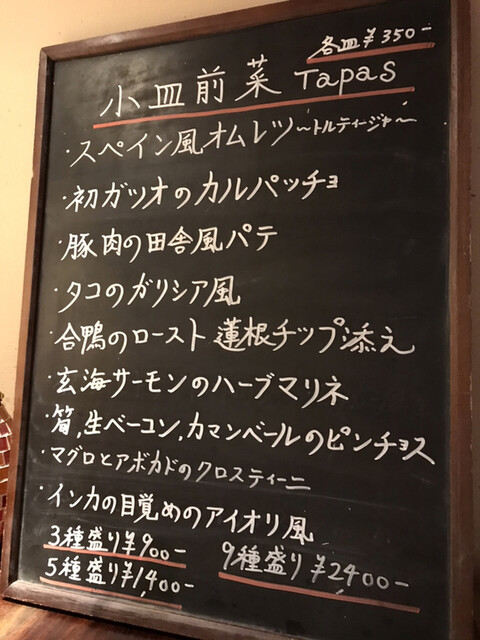 各皿¥350-
小皿前菜 Tapas
・スペイン風オムレツ〜トルティージャ〜
・初ガツオのカルパッチョ
・豚肉の田舎風パテ
・タコのガリシア風
・合鴨のロースト 蓮根チップ添え
・玄海サーモンのハーブマリネ
・筍,生ベーコン,カマンベールのピンチョス
・マグロとアボカドのクロスティーニ
・インカの目覚めのアイオリ風
3種盛り¥900-
5種盛り¥1,400-
9種盛り¥2400-